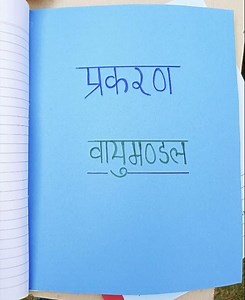 प्रकरण
वायुमण्डल